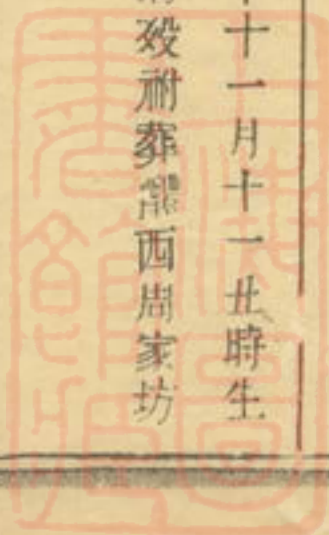 十一月十一丑時生
歿祔葬縣西周家坊